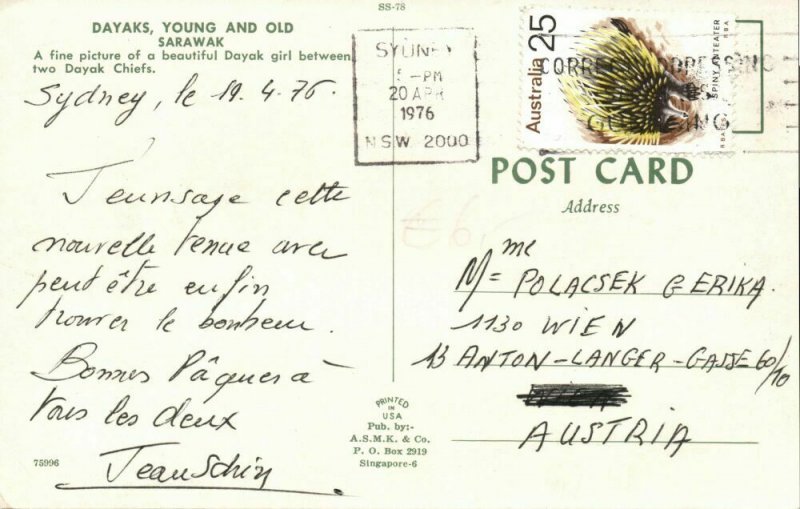 SS-78
DAYAKS, YOUNG AND OLD
SARAWAK
A fine picture of a beautiful Dayak girl between
two Dayak Chiefs.
Sydney, le 19.4.76
J'envisage cette
nouvelle tenue avec
peut être enfin
trouver le bonheur.
Bonnes Pâques à
tous les deux
75996
SYDNEY
5-PM
20 APR
1976
N.S.W 2000
Australia 25
SPINY ANTEATER
CORRECT ADDRESSING
POST CARD
Address
€6,-
Mme POLACSEK GERIKA.
1130 WIEN
13 ANTON-LANGER-GASSE 60/10
AUSTRIA
PRINTED
IN
USA
Pub. by:-
A.S.M.K. & Co.
P. O. Box 2919
Singapore-6